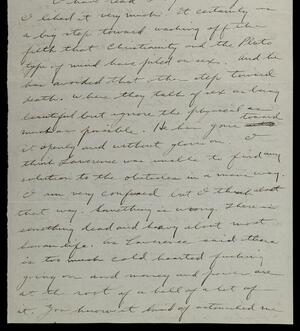 I have read
I liked it very much. It certainly is
a big step toward washing off the
filth that Christianity and the Plato
type of mind have piled on sex. and he
has avoided that other step toward
death. Where they talk of sex as being
beautiful but ignore the physical as
much as possible. He has gone toward
it openly and without glove on. I
think Lawrence was unable to find any
solution to the obstacles in a main way.
I am very confused but I think about
that way. Something is wrong. There is
something dead and heavy about most
human life. As Lawrence said there
is too much cold hearted fucking
going on and money and power are
at the root of a hell of a lot of
it. You know it kind of astounded me